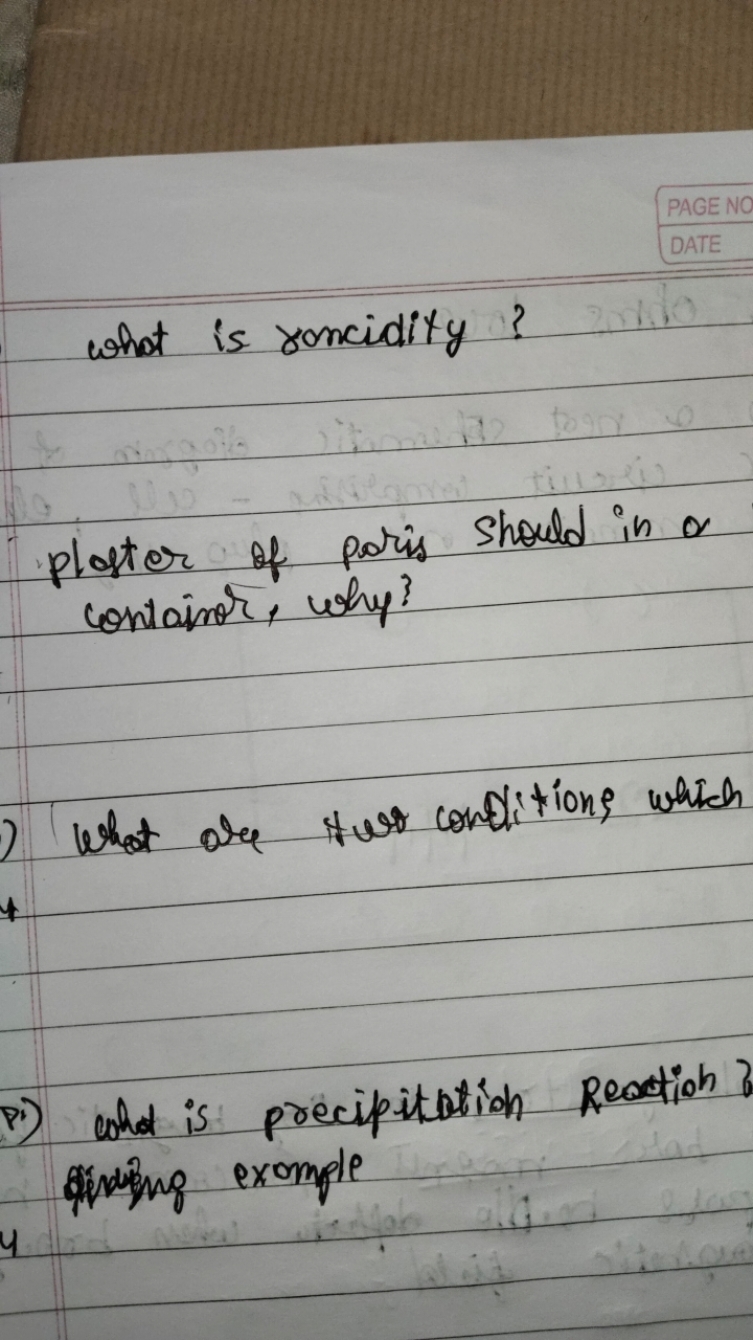 PAGE NO
DATE
what is rancidity ?
plaster of paris should in a
container, why?
) What are two conditions which
) what is precipitation Reaction ?
giving example